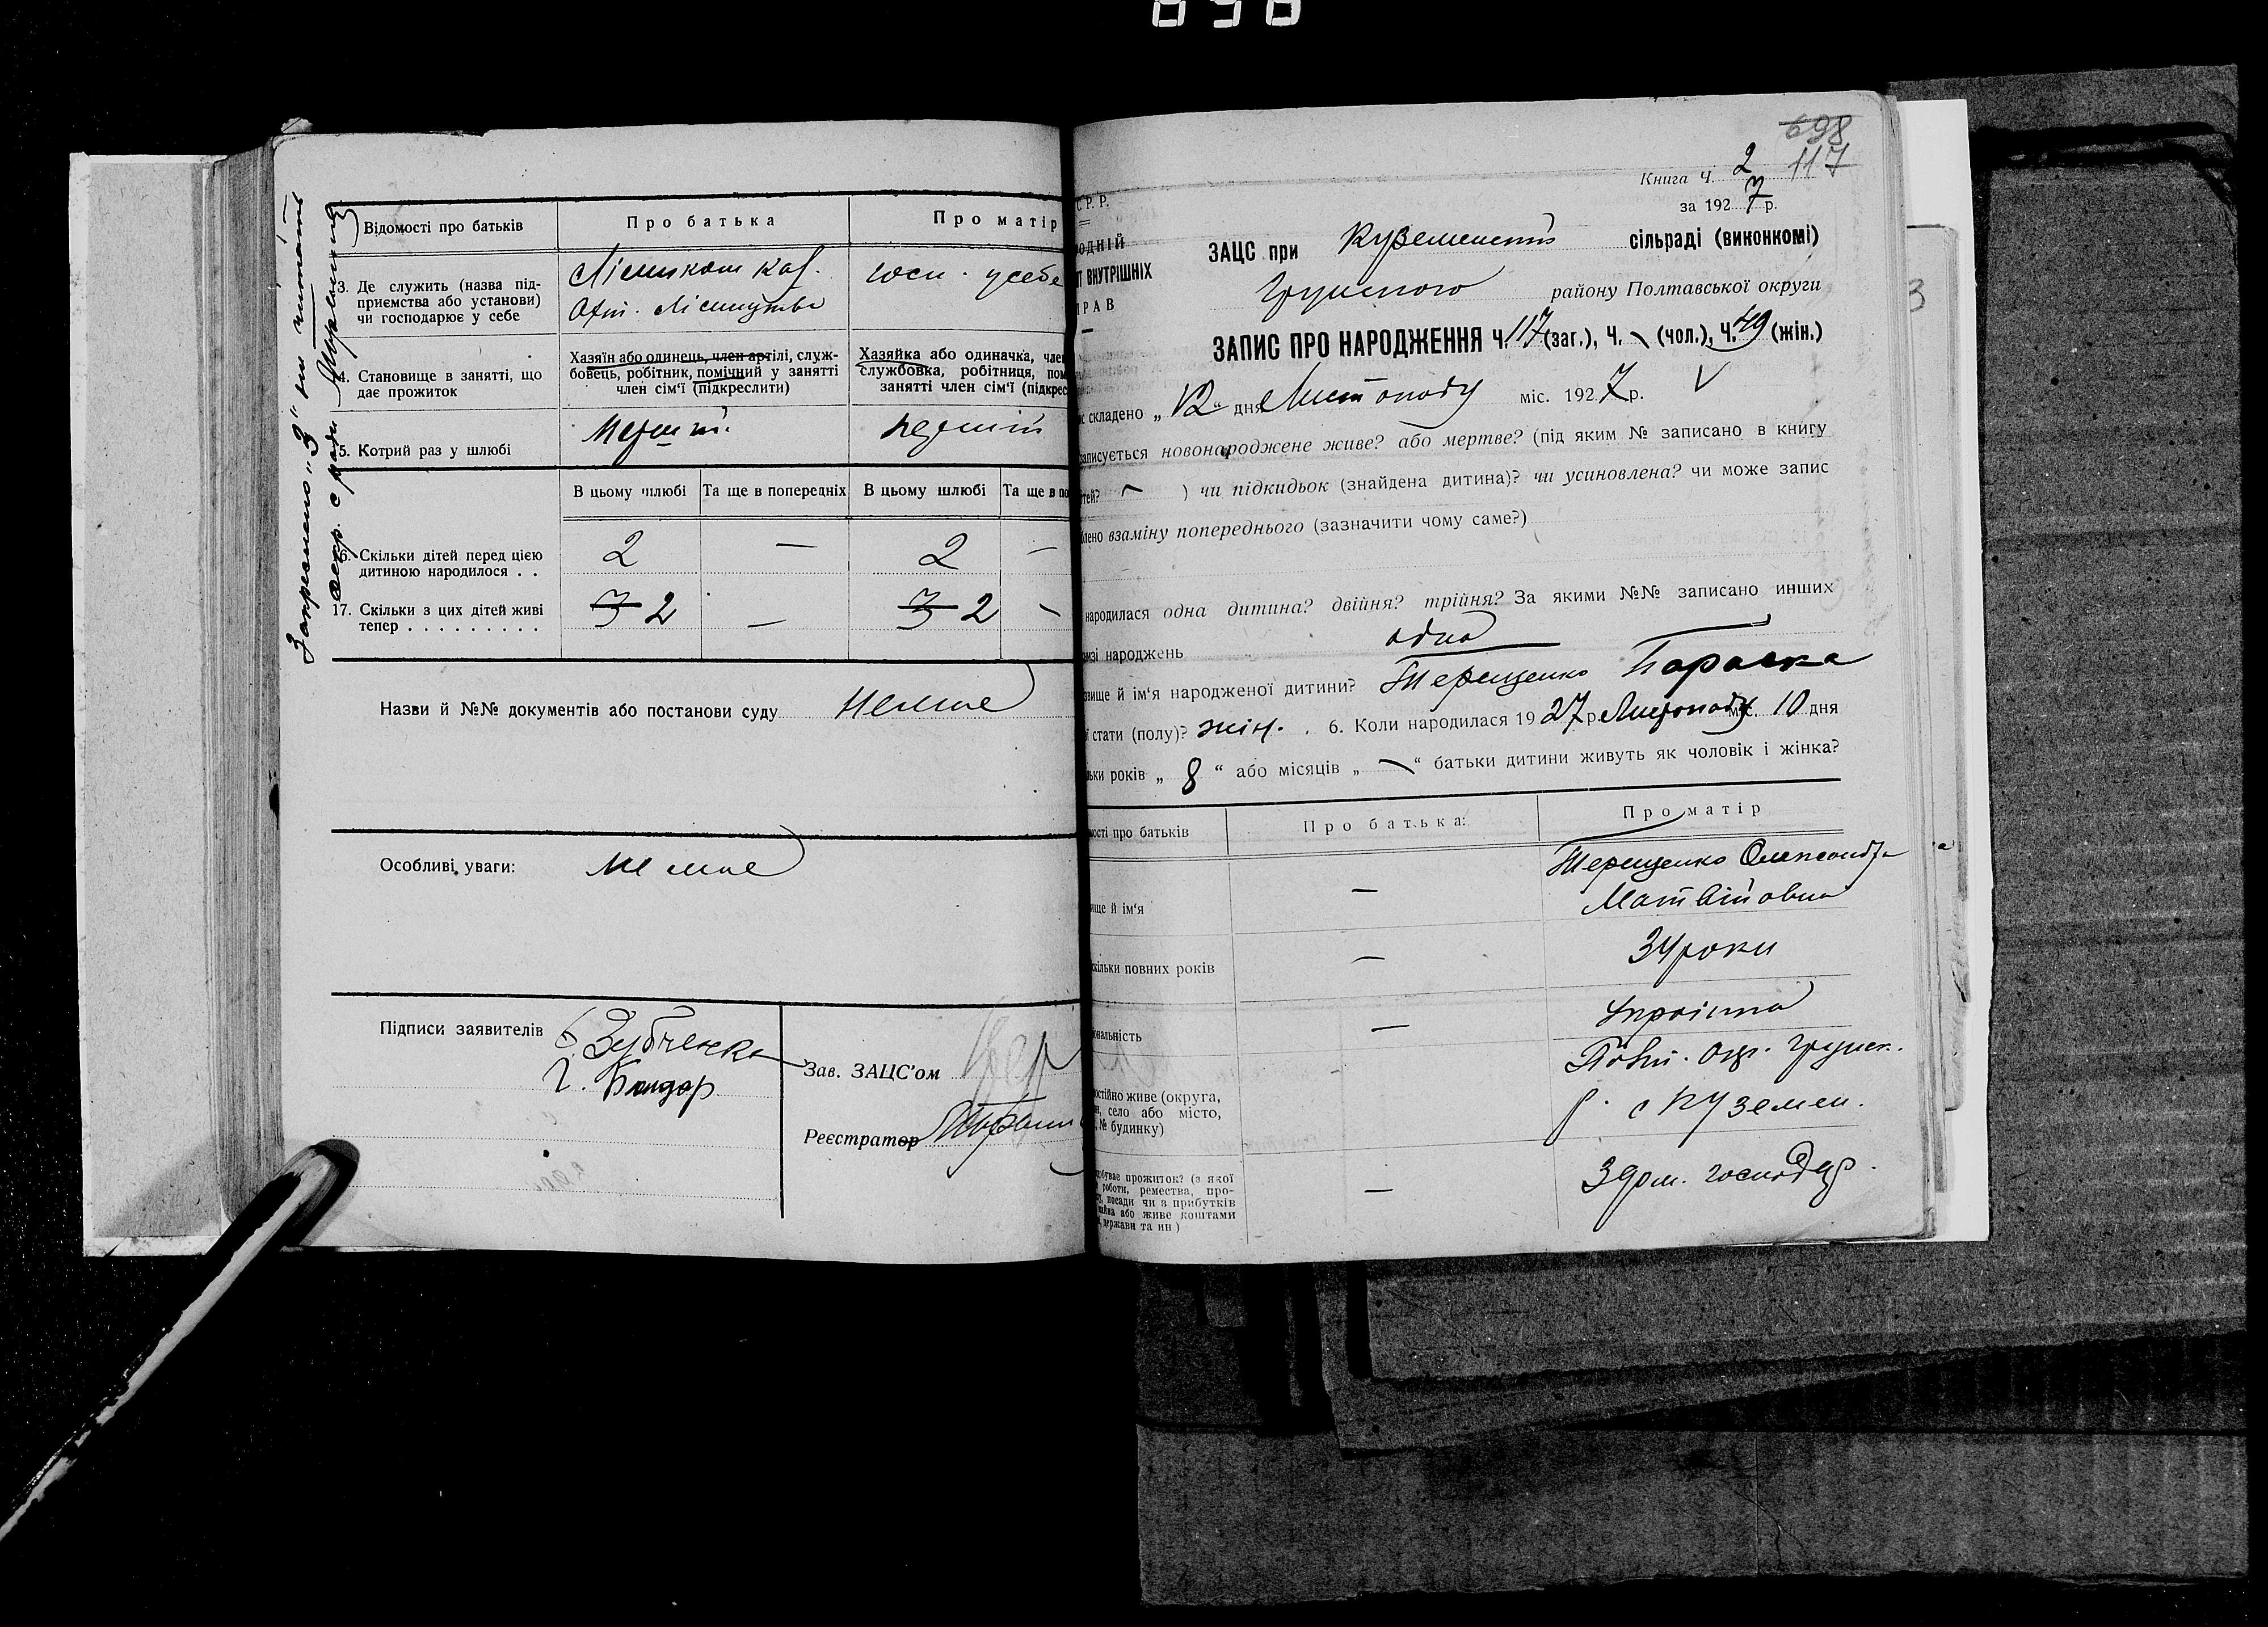 Відомості про батьків
Про батька
Про матір
3. Де служить (назва під-
приємства або установи)
чи господарює у себе
госп. у себе
4. Становище в занятті, що
дає прожиток
Хазяїн або одинець, член артілі, служ-
бовець, робітник, помічний у занятті
член сім'ї (підкреслити)
Хазяйка або одиначка, член
службовка, робітниця, пом
занятті член сім'ї (підкрес
5. Котрий раз у шлюбі
перший
перший
В цьому шлюбі
Та ще в попередніх
В цьому шлюбі
Та ще в по
6. Скільки дітей перед цією
дитиною народилося . .
2
—
2
—
17. Скільки з цих дітей живі
тепер . . . . . . . . .
3 2
—
3 2
—
Назви й №№ документів або постанови суду немає
Особливі уваги: немає
Підписи заявителів
Зубченко
Г. Бондар
Зав. ЗАЦС'ом
Реєстратор
Закреслено „3" не читать
698
117
Книга Ч. 2
за 1927 р.
С.Р.Р.
ОДНІЙ
Т ВНУТРІШНІХ
ПРАВ
ЗАЦС при Куземенській сільраді (виконкомі)
Грунського району Полтавської округи
ЗАПИС ПРО НАРОДЖЕННЯ Ч. 117 (заг.), Ч. — (чол.), Ч. 49 (жін.)
с складено „ 12 " дня Листопаду міс. 1927 р.
записується новонароджене живе? або мертве? (під яким № записано в книгу
тей? — ) чи підкидьок (знайдена дитина)? чи усиновлена? чи може запис
лено взаміну попереднього (зазначити чому саме?)
народилася одна дитина? двійня? трійня? За якими №№ записано инших
изі народжень одна
звище й ім'я народженої дитини? Терещенко Параска
ї стати (полу)? жін. . 6. Коли народилася 1927 р. Листопаду міс. 10 дня
льки років „ 8 " або місяців „ — " батьки дитини живуть як чоловік і жінка?
мості про батьків
Про батька:
Про матір
ище й ім'я
—
Терещенко Олександра
Матвійовна
скільки повних років
—
34 роки
іональність
—
Україн­ка
остійно живе (округа,
н, село або місто,
, № будинку)
Полт. окр. Грунск.
р. с Куземен.
обуває прожиток? (з якої
роботи, ремества, про-
, посади чи з прибутків
майна або живе коштами
, держави та ин)
—
З дом. господар.